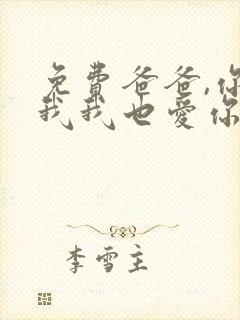 免费爸爸,你
我我也爱你
李雪主